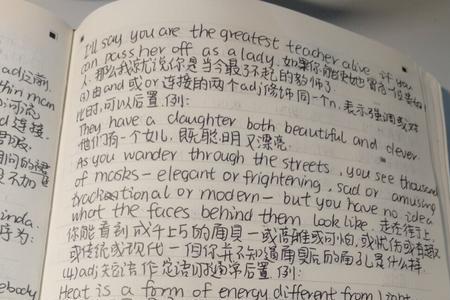 I'll say you are the greatest teacher alive if you
can pass her off as a lady. 如果你能使她冒充一位贵妇
人,那么我就说你是当今最了不起的教师了.
(3)由and或or连接的两个adj修饰同一个n,表示强调或对
比时,可以后置.例:
They have a daughter both beautiful and clever.
他们有一个女儿,既聪明又漂亮.
As you wander through the streets, you see thousand
of masks – elegant or frightening, sad or amusing
traditional or modern – but you have no idea
what the faces behind them look like. 走在街上,
你能看到成千上万的面具—或高雅或可怕,或忧伤或有趣
或传统或现代—但你并不知道面具后的面孔是什么样.
(4)adj短语作定语时通常后置.例:
Heat is a form of energy different from light
adj之前,
thin man
连接,
inda.
序为:
ebody